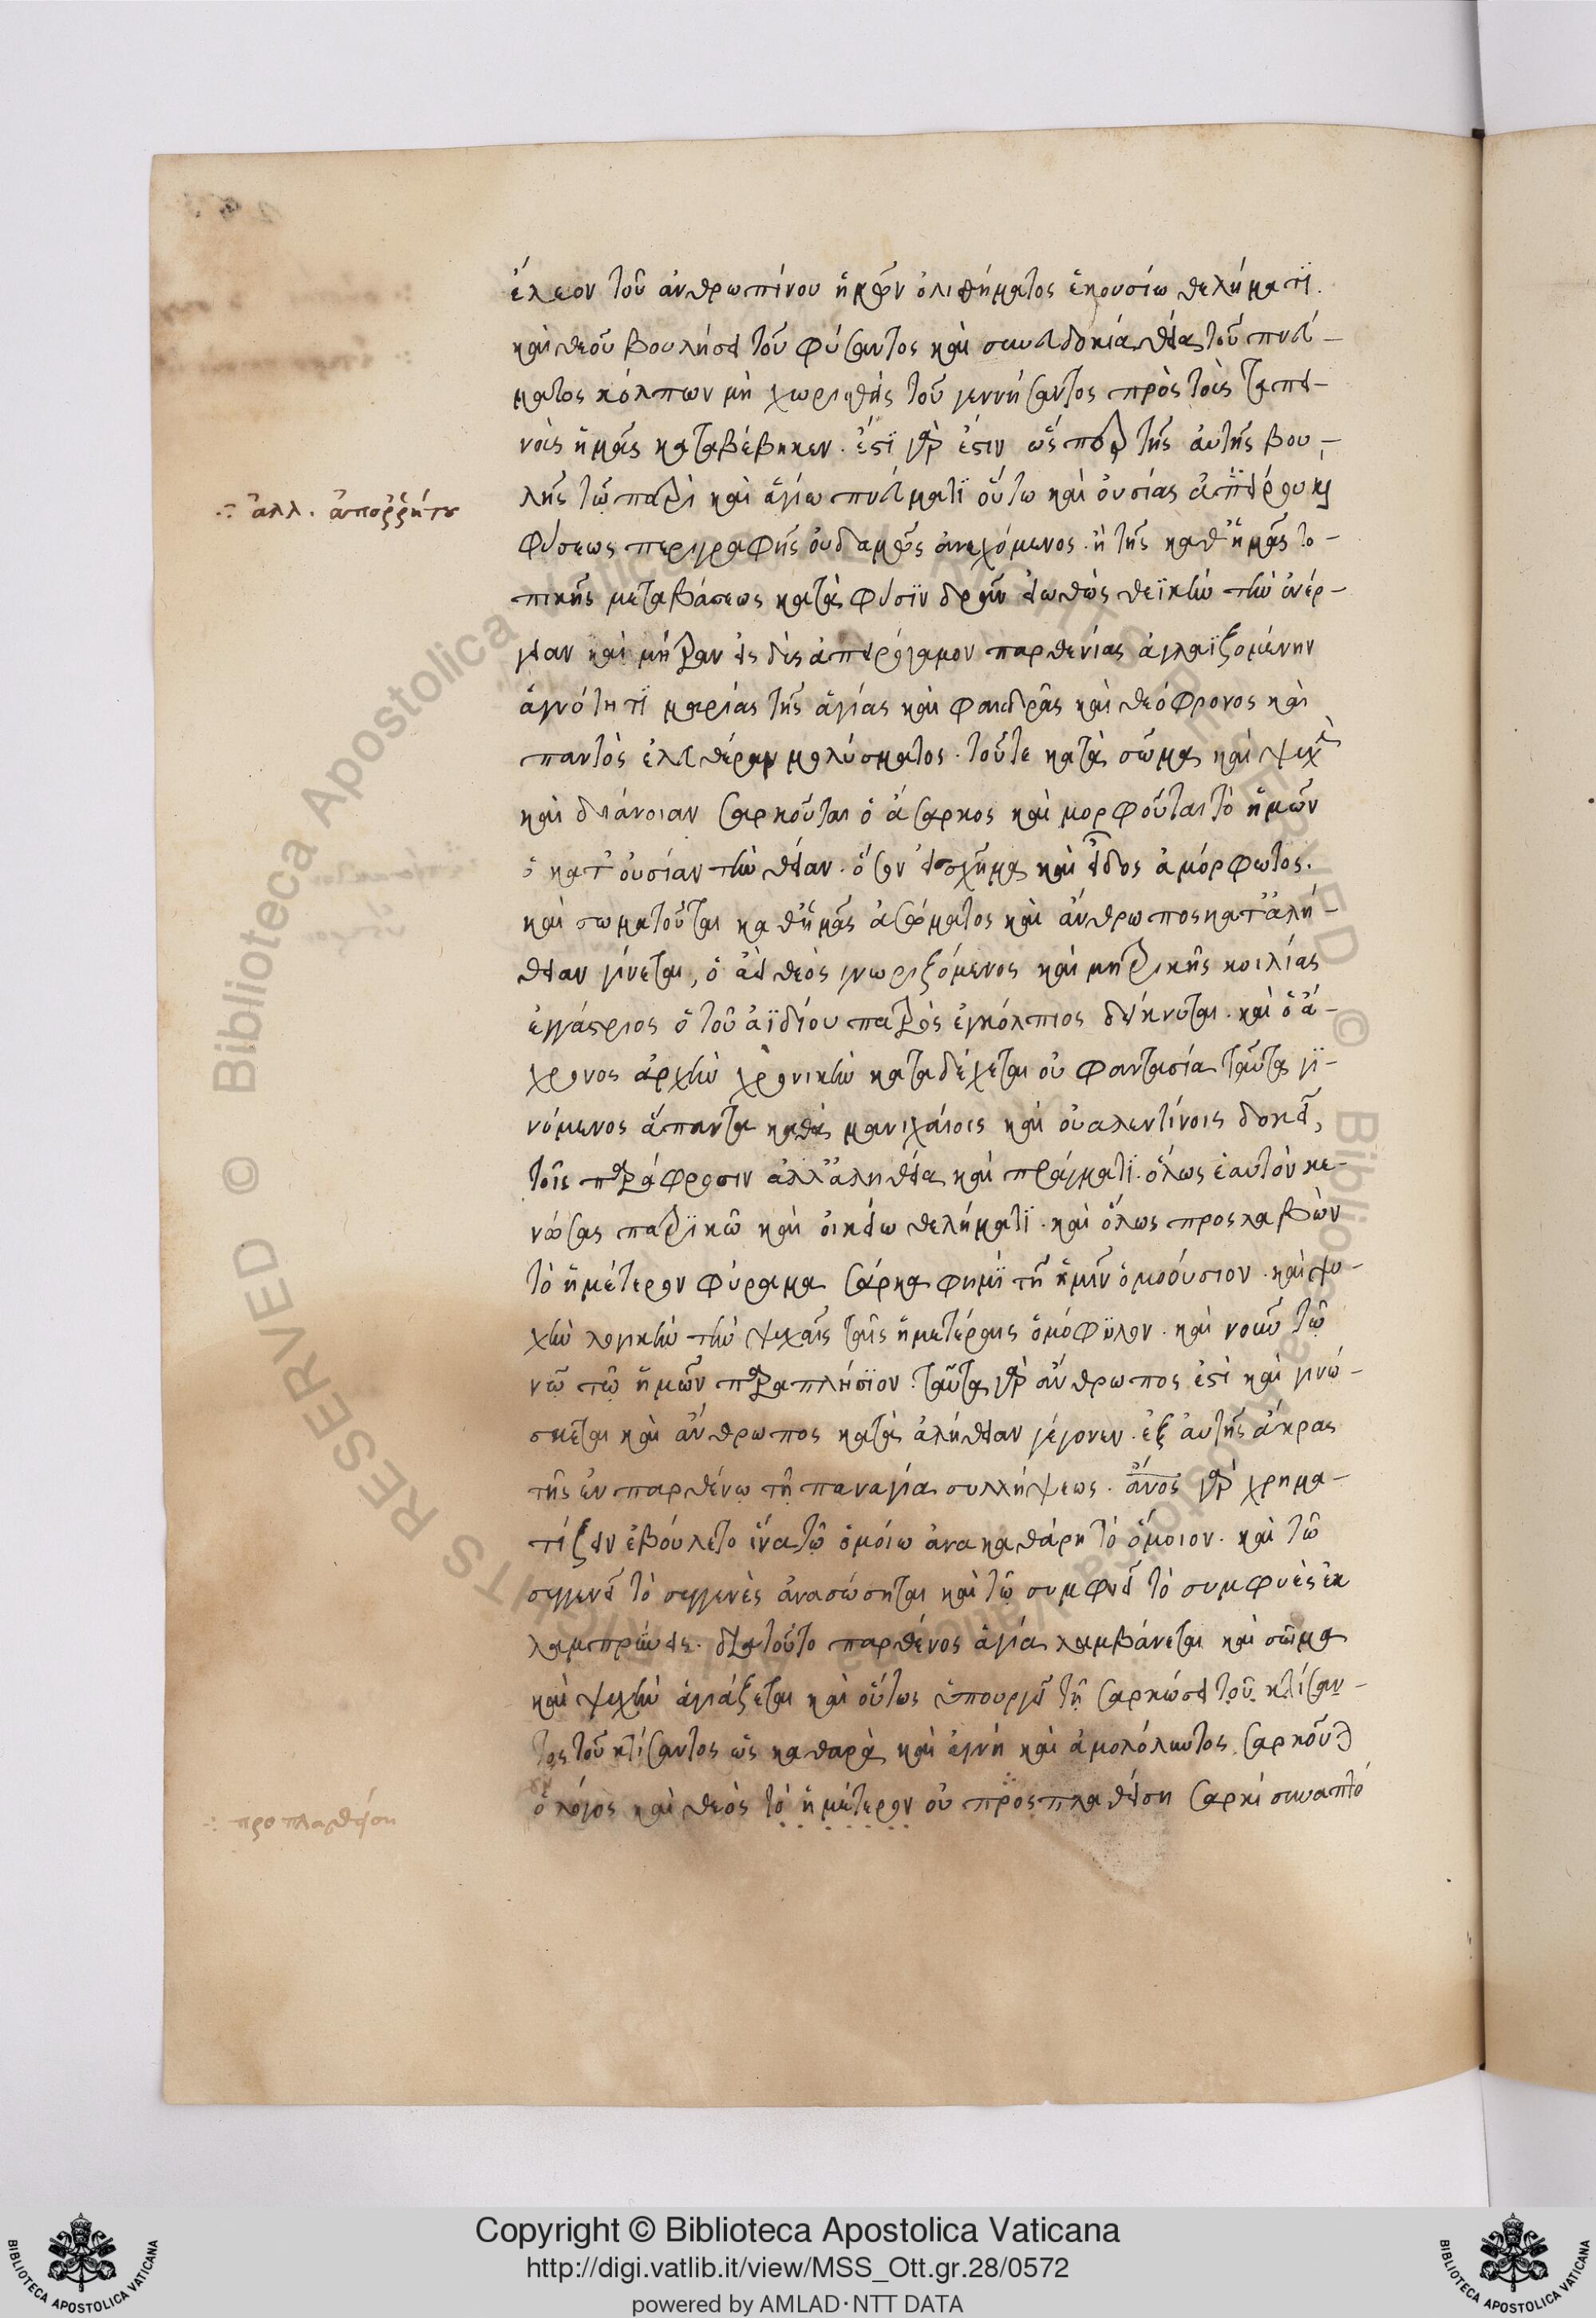 ἔλεον τοῦ ἀνθρωπίνου ἡμῶν ὀλισθήματος ἑκουσίω θελήματϊ.
καὶ θεοῦ βουλήσει τοῦ φύσαντος καὶ συνευδοκία θεία τοῦ πνεύ-
ματος κόλπων μὴ χωρισθεὶς τοῦ γεννήσαντος πρὸς τοὺς ταπει-
νοὺς ἡμᾶς καταβέβηκεν. ἔστϊ γὰρ ἐστιν ὥσπερ τῆς αὐτῆς βου-
λῆς τῷ πατρὶ καὶ ἁγίω πνεύματϊ οὕτω καὶ οὐσίας ἀπείρου καὶ
φύσεως περιγραφῆς οὐδαμῶς ἀνεχόμενος. ἢ τῆς καθ' ἡμᾶς το-
πικῆς μεταβάσεως κατὰ φύσϊν δρᾶν εἰωθὼς θεϊκὴν τὴν ἐνέρ-
γειαν καὶ μήτραν εἰσδὺς ἀπειρόγαμον παρθενίας ἀγλαϊζομένην
ἁγνότητϊ μαρίας τῆς ἁγίας καὶ φαιδρᾶς καὶ θεόφρονος καὶ
παντὸς ἐλευθέραν μολύσματος. τοῦτε κατὰ σῶμα καὶ ψυχὴν
καὶ διάνοιαν σαρκοῦται ὁ ἄσαρκος καὶ μορφοῦται τὸ ἡμῶν
ὁ κατ' οὐσίαν τὴν θείαν. ὅσον εἰς σχῆμα καὶ εἶδος ἀμόρφωτος.
καὶ σωματοῦται καθ' ἡμᾶς ἀσώματος καὶ ἄνθρωπος κατ' ἀλή-
θειαν γίνεται, ὁ ἀεὶ θεὸς γνωριζόμενος καὶ μητρικῆς κοιλίας
ἐγγάστριος ὁ τοῦ ἀϊδίου πατρὸς ἐγκόλπιος δείκνυται. καὶ ὁ ἄ-
χρονος ἀρχὴν χρονικὴν καταδέχεται οὐ φαντασία ταῦτα γϊ-
νόμενος ἅπαντα καθὰ μανιχαίοις καὶ οὐαλεντίνοις δοκεῖ,
τοῖς παράφροσιν ἀλλ' ἀληθεία καὶ πράγματϊ. ὅλως ἑαυτὸν κε-
νώσας πατρϊκῶ καὶ οἰκείω θελήματϊ. καὶ ὅλως προσλαβὼν
τὸ ἡμέτερον φύραμα σάρκα φημϊ τὴν ἡμῖν ὁμοούσιον. καὶ ψυ-
χὴν λογικὴν τὴν ψυχαῖς ταῖς ἡμετέραις ὁμόφϋλον. καὶ νοῦν τῷ
νῶ τῶ ἡμῶν παραπλήσϊον. ταῦτα γὰρ ἄνθρωπος ἐστὶ καὶ γινώ-
σκεται καὶ ἄνθρωπος κατὰ ἀλήθειαν γέγονεν. ἐξ αὐτῆς ἄκρας
τῆς ἐν παρθένω τῆ παναγία συλλήψεως. ἄνος γὰρ χρημα-
τίζειν ἐβούλετο ἵνα τῶ ὁμοίω ἀνακαθάρη τὸ ὅμοιον. καὶ τῶ
συγγενεῖ τὸ συγγενὲς ἀνασώσηται καὶ τῶ συμφυεῖ τὸ συμφυὲς ἐκ
λαμπρύνειε. διατοῦτο παρθένος ἁγία λαμβάνεται καὶ σῶμα
καὶ ψυχὴν ἁγιάζεται καὶ οὕτως ὑπουργεῖ τῆ σαρκώσει τοῦ κτίσαν-
τος τοῦ κτίσαντος ὡς καθαρὰ καὶ ἁγνὴ καὶ ἀμολόλυντος. σαρκοῦται
ὁ λόγος καὶ θεὸς τὸ ἡμέτερον οὐ προσπλαθείση σαρκὶ συναπτό
∴ ἀλλ. ἀπορρήτου
∴ προπλασθείση
Copyright © Biblioteca Apostolica Vaticana
http://digi.vatlib.it/view/MSS_Ott.gr.28/0572
powered by AMLAD·NTT DATA